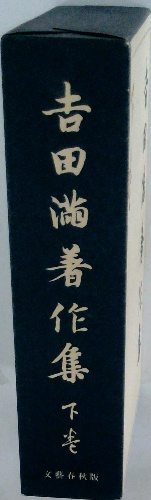 吉田満著作集
下巻
文藝春秋版